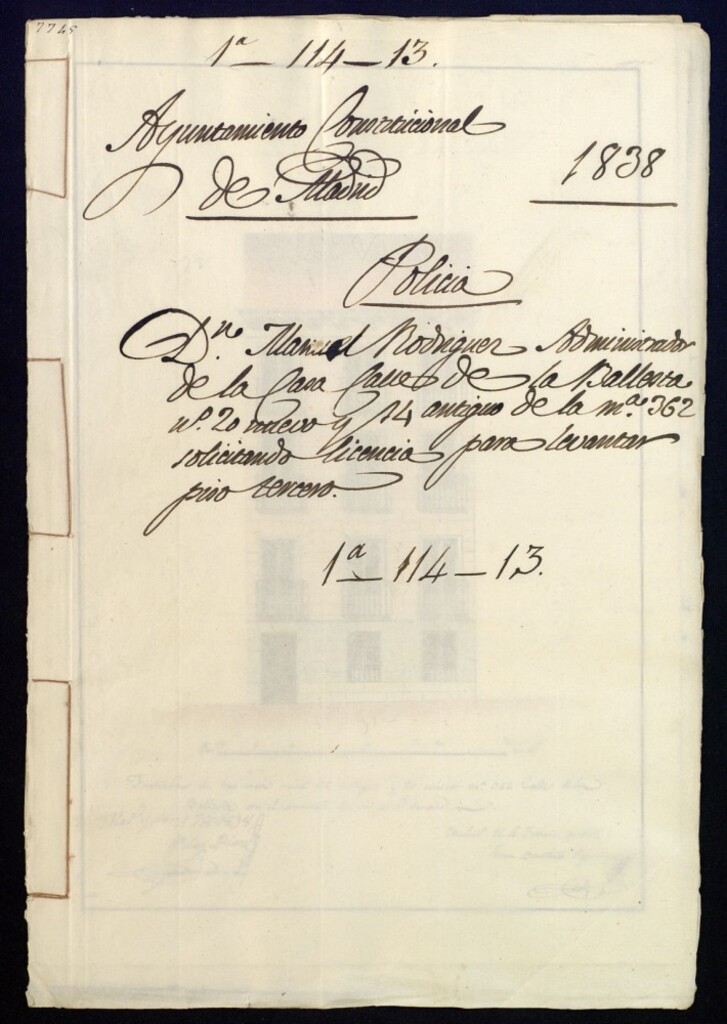 7745
1ª — 114 — 13.
Ayuntamiento Constitucional
de Madrid
1838
Policia
Dn. Manuel Rodriguez Administrador
de la Casa Calle de la Ballesta
nº. 20 nuevo y 14 antiguo de la mª. 362
solicitando licencia para levantar
piso tercero.
1ª — 114 — 13.